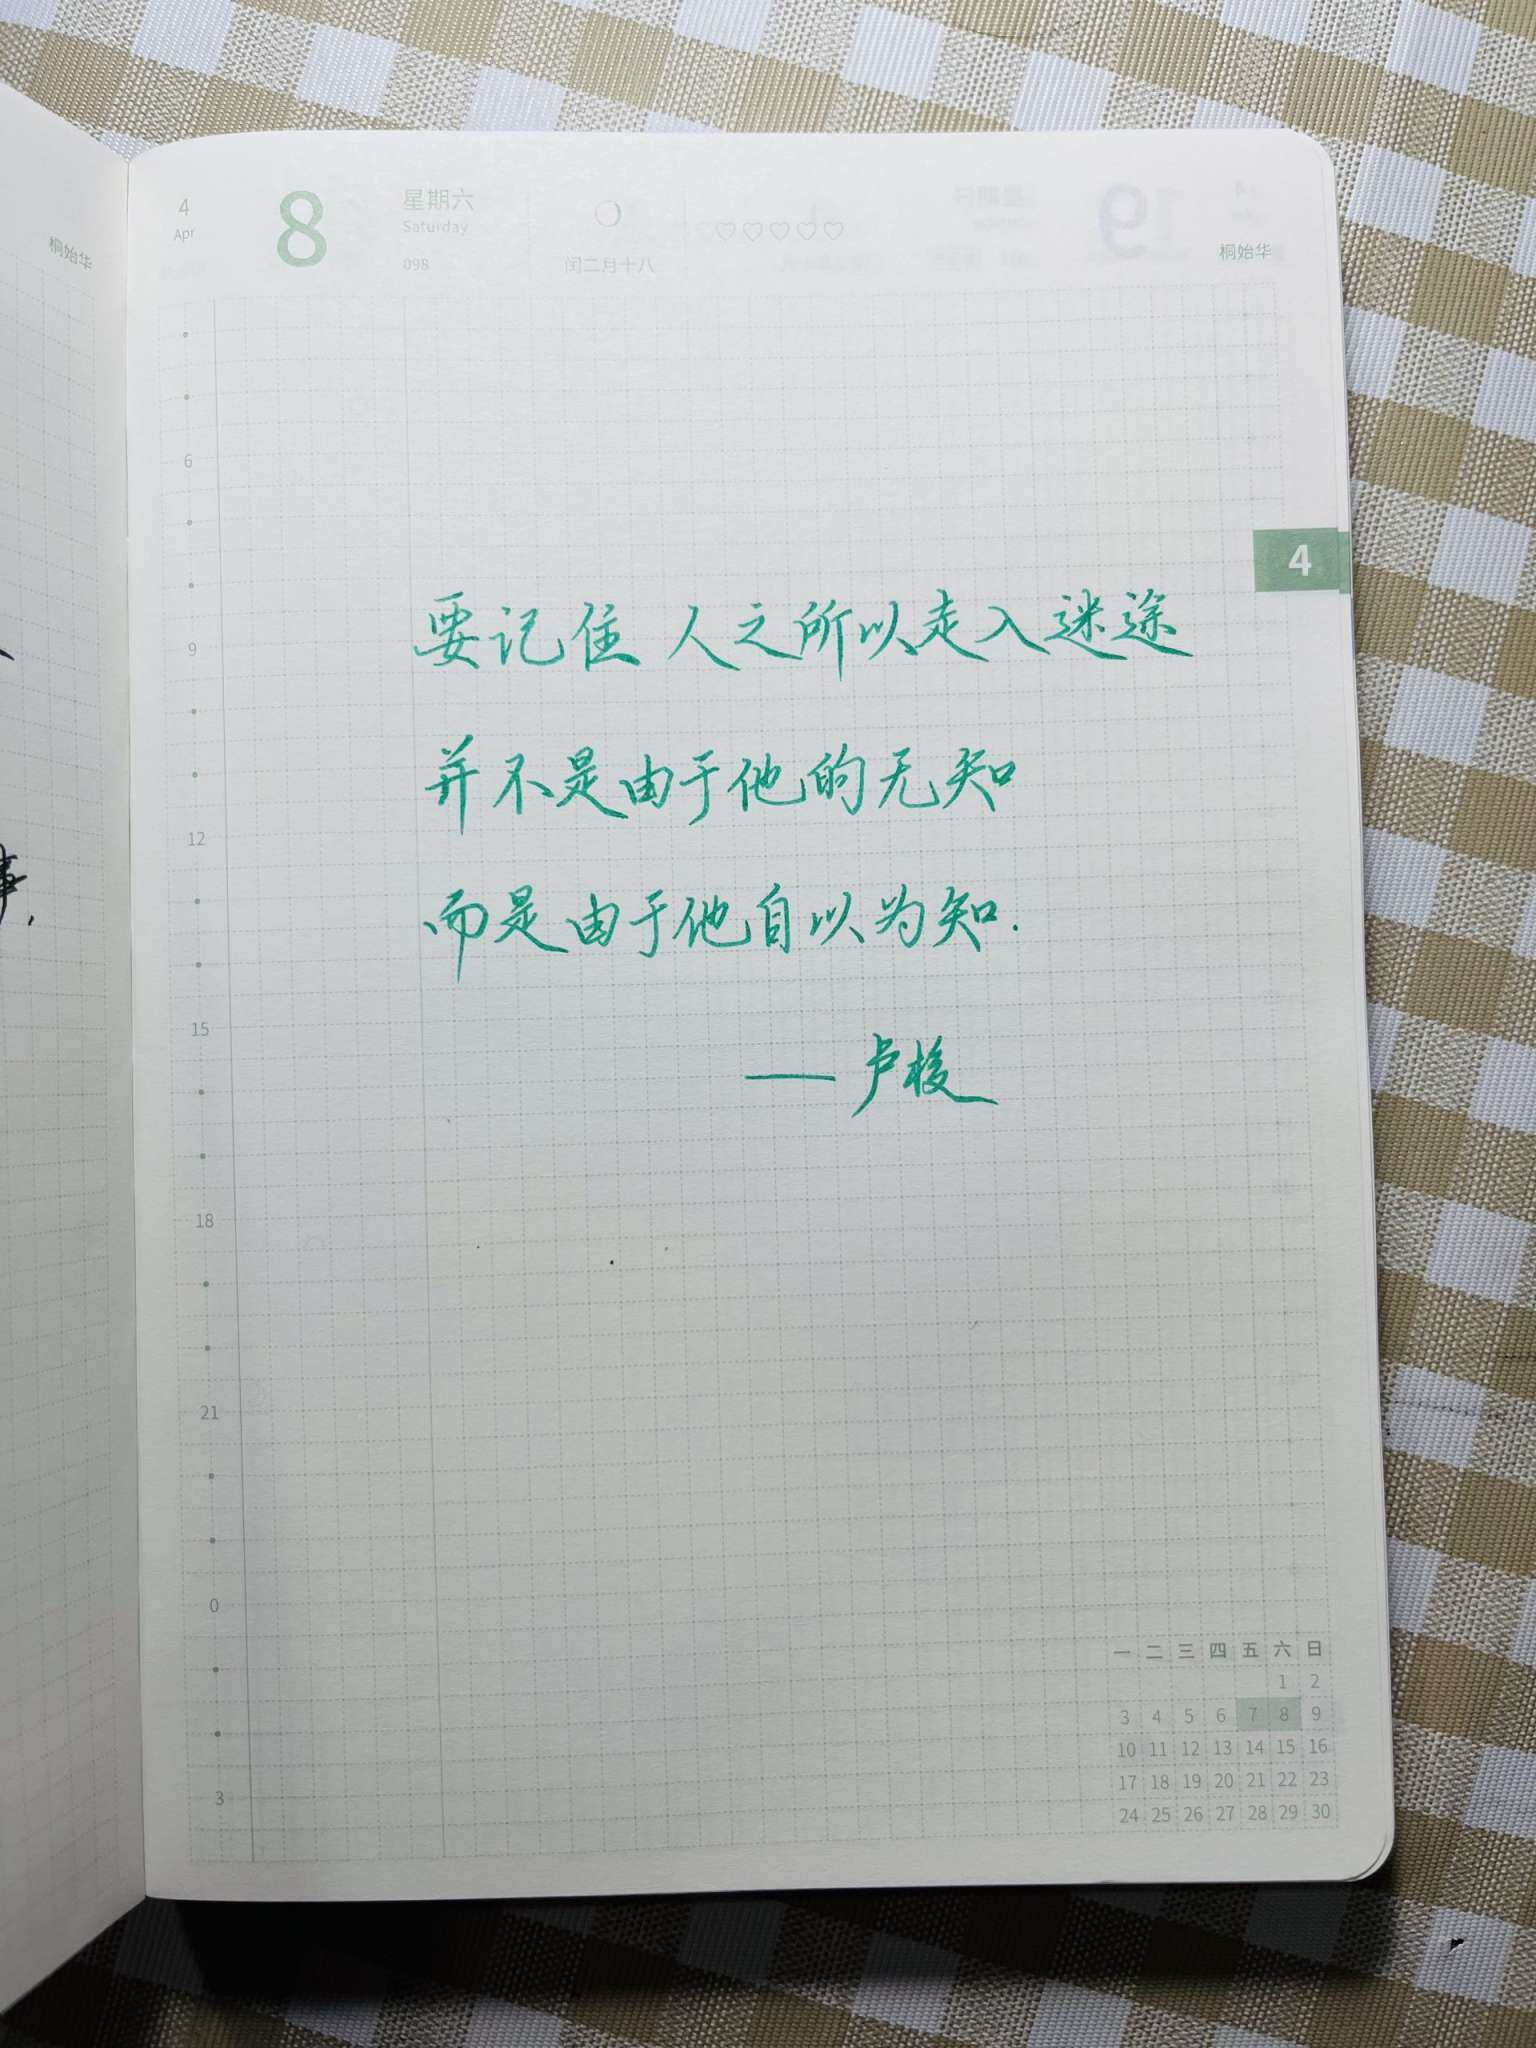 桐始华
事.
4
Apr
8
星期六
Saturday
098
闰二月十八
19
桐始华
4
6
9
12
15
18
21
0
3
要记住 人之所以走入迷途
并不是由于他的无知
而是由于他自以为知.
——卢梭
一 二 三 四 五 六 日
1 2
3 4 5 6 7 8 9
10 11 12 13 14 15 16
17 18 19 20 21 22 23
24 25 26 27 28 29 30